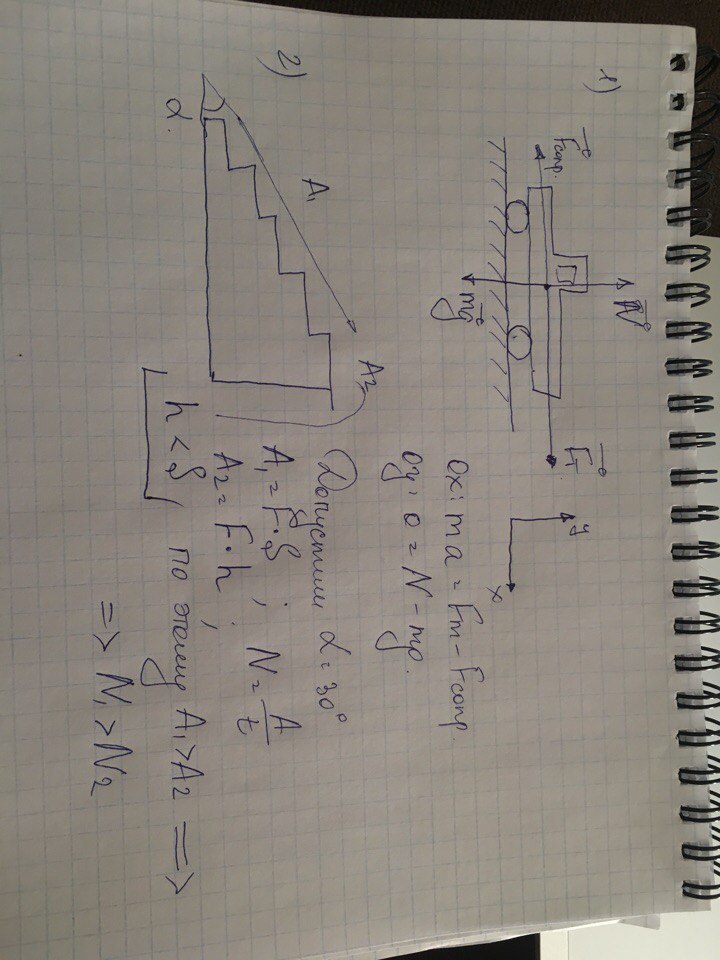 1)
F⃗сопр.
N⃗
mg⃗
F⃗т
y
x
ox: ma = Fт - Fсопр.
oy: 0 = N - mg.
2)
α.
A₁
A₂
Допустим α = 30°
A₁ = F·S ; N = A/t
A₂ = F·h ;
h < S, по этому A₁ > A₂ =>
=> N₁ > N₂